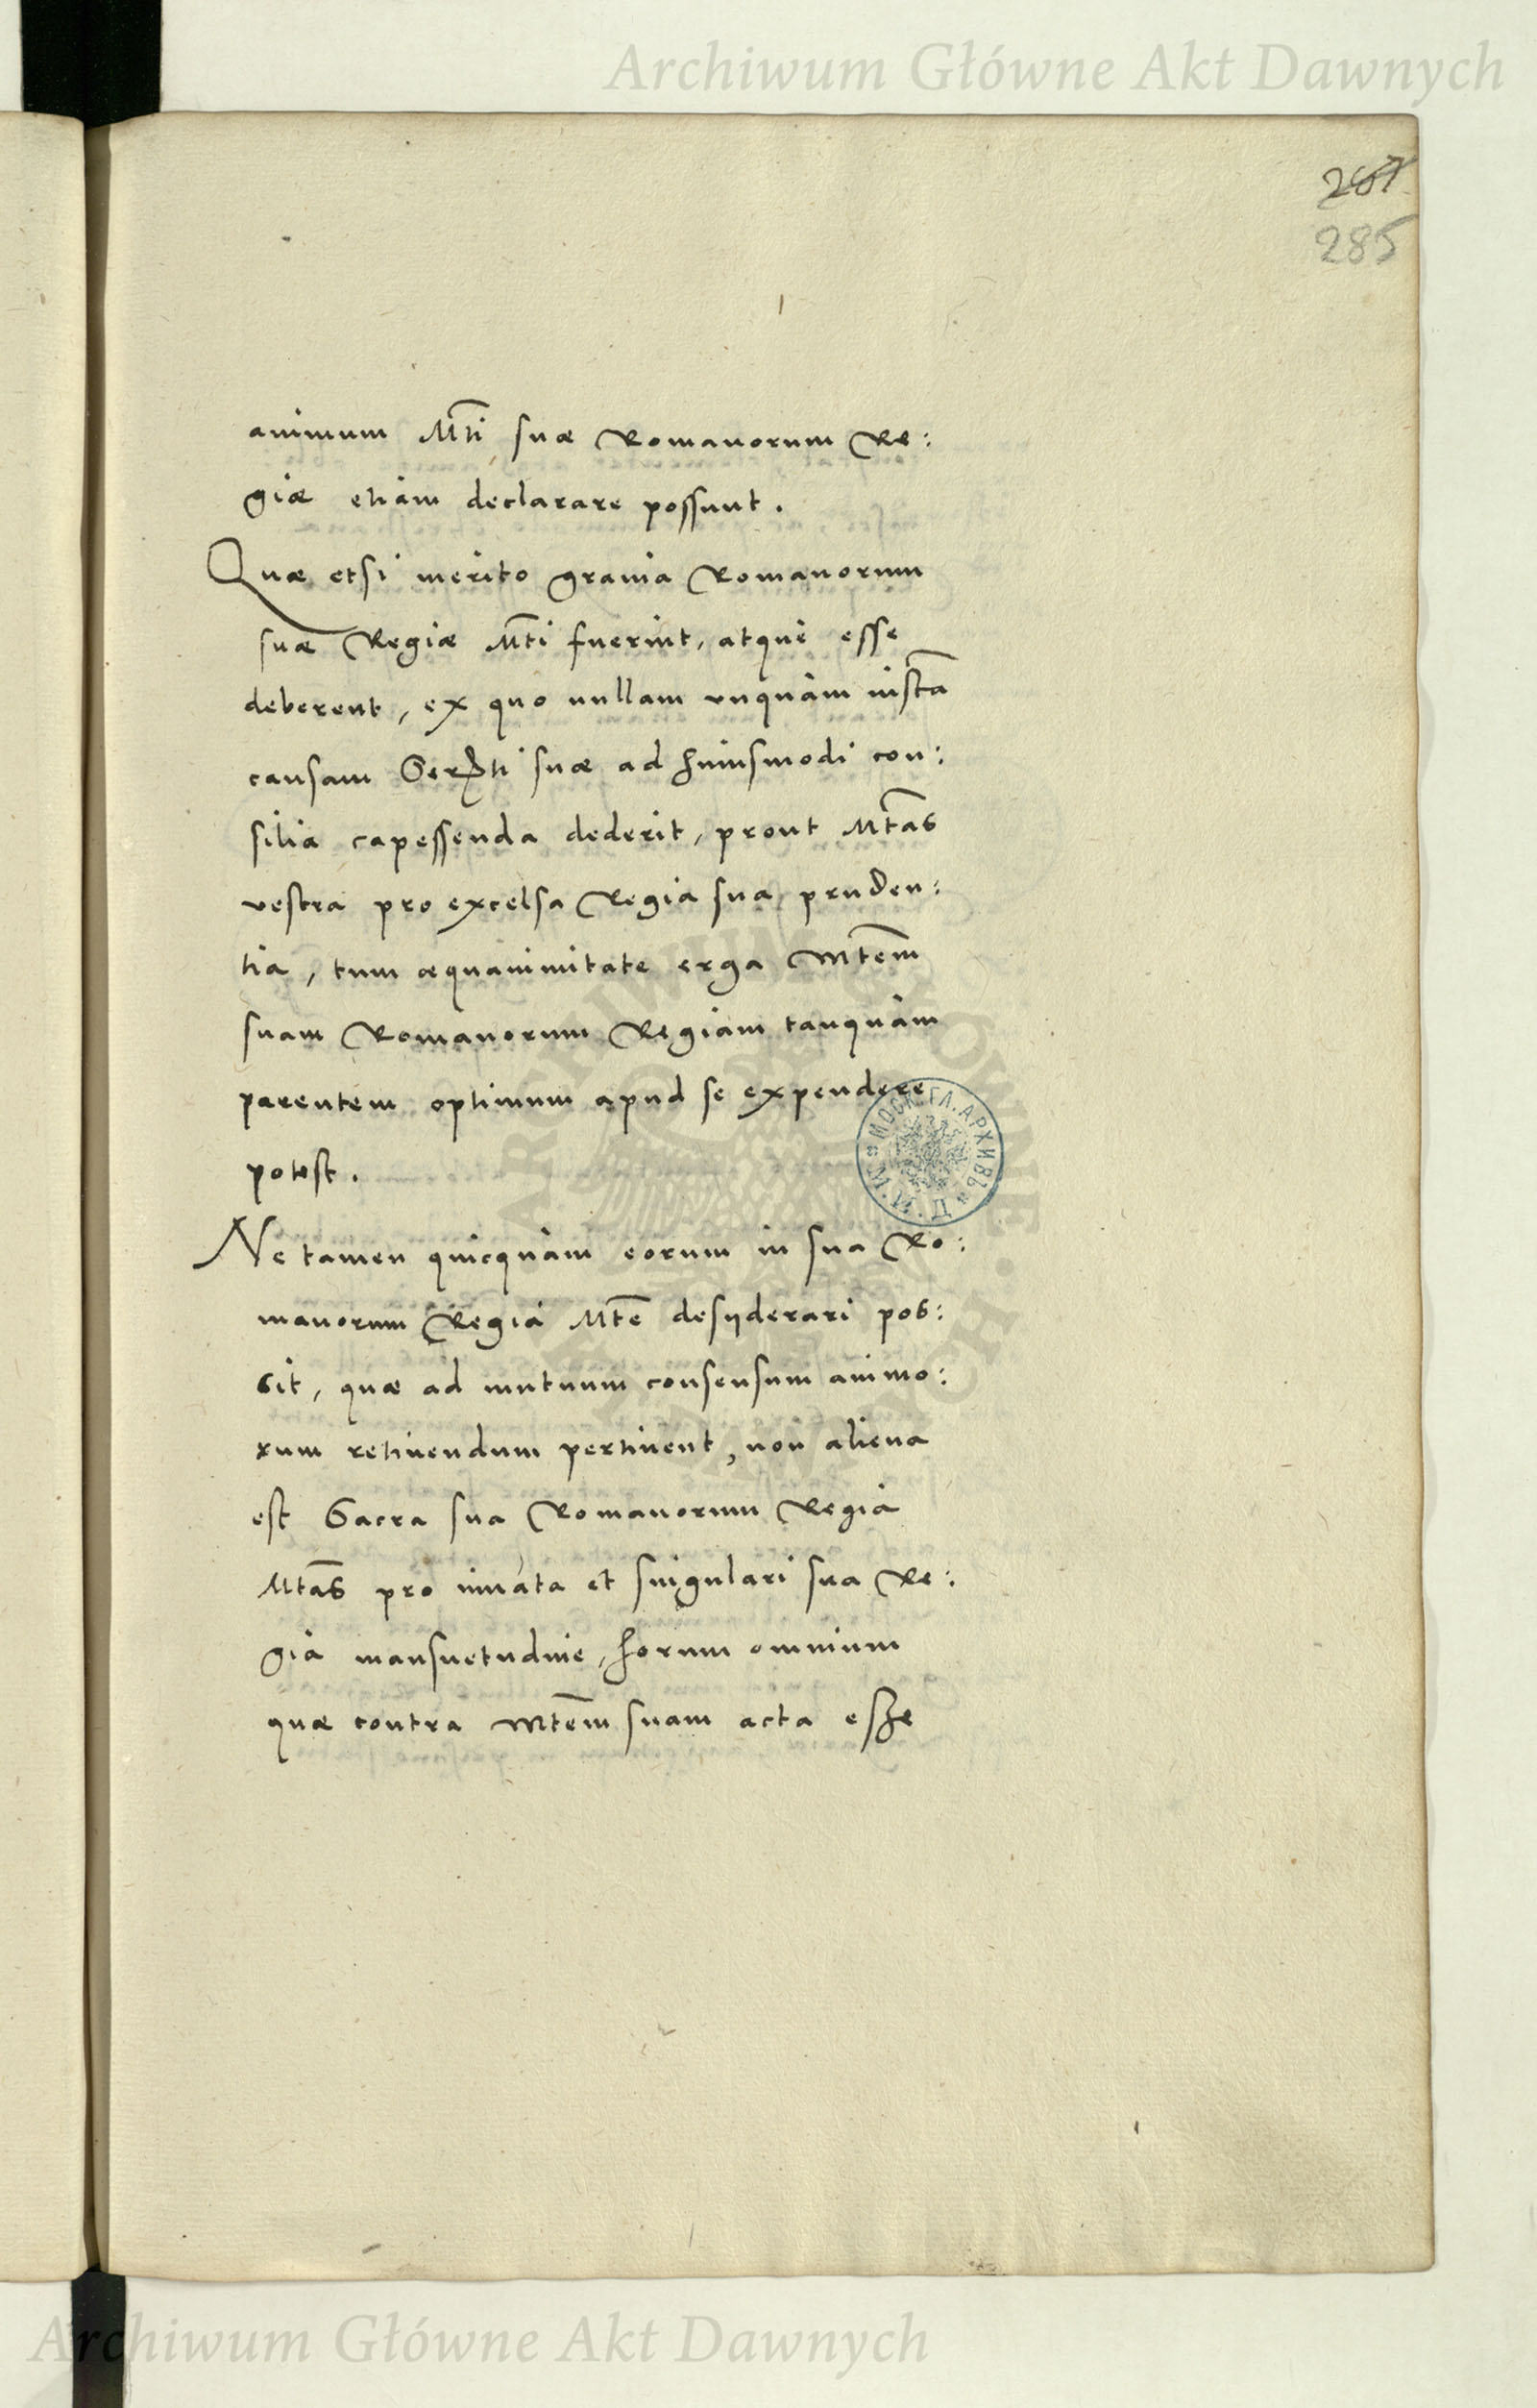 Archiwum Główne Akt Dawnych
267
285
animum Mti suæ Romanorum Re:
giæ etiam declarare possunt.
Quæ etsi merito grauia Romanorum
suæ Regiæ Mti fuerint, atque esse
deberent, ex quo nullam vnquam iusta
causam Serti suæ ad huiusmodi con:
silia capessenda dederit, prout Mtas
vestra pro excelsa Regia sua pruden:
tia, tum æquanimitate erga Mtem
suam Romanorum Regiam tanquam
parentem optimum apud se expendere
potest.
МОСК. ГЛ. АРХИВЪ
Ne tamen quicquam eorum in sua Ro:
manorum Regia Mte desyderari pos:
sit, quæ ad mutuum consensum animo:
rum retinendum pertinent, non aliena
est Sacra sua Romanorum Regia
Mtas pro innata et singulari sua Re:
gia mansuetudine, horum omnium
quæ contra Mtem suam acta esse
Archiwum Główne Akt Dawnych